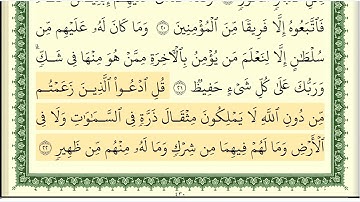 فَٱتَّبَعُوهُ إِلَّا فَرِيقًا مِّنَ ٱلْمُؤْمِنِينَ ٢٠ وَمَا كَانَ لَهُۥ عَلَيْهِم مِّن
سُلْطَٰنٍ إِلَّا لِنَعْلَمَ مَن يُؤْمِنُ بِٱلْءَاخِرَةِ مِمَّنْ هُوَ مِنْهَا فِى شَكٍّ ۗ
وَرَبُّكَ عَلَىٰ كُلِّ شَىْءٍ حَفِيظٌ ٢١ قُلِ ٱدْعُوا۟ ٱلَّذِينَ زَعَمْتُم
مِّن دُونِ ٱللَّهِ لَا يَمْلِكُونَ مِثْقَالَ ذَرَّةٍ فِى ٱلسَّمَٰوَٰتِ وَلَا فِى
ٱلْأَرْضِ وَمَا لَهُمْ فِيهِمَا مِن شِرْكٍ وَمَا لَهُۥ مِنْهُم مِّن ظَهِيرٍ ٢٢
٤٣٠